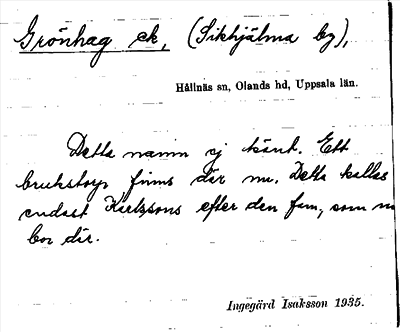 Grönhag ek, (Sikhjälma by),
Hållnäs sn, Olands hd, Uppsala län.
Detta namn ej känt. Ett
brukstorp finns där nu. Detta kallas
endast Karlssons efter den fam, som nu
bor där.
Ingegärd Isaksson 1935.